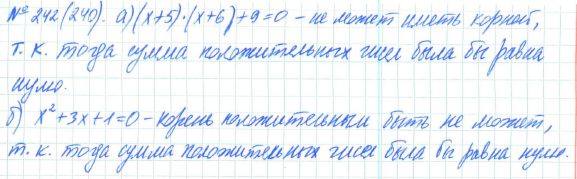 № 242 (240). а) (x+5)·(x+6)+9=0 – не может иметь корней,
т. к. тогда сумма положительных чисел была бы равна
нулю.
б) x²+3x+1=0 – корень положительным быть не может,
т. к. тогда сумма положительных чисел была бы равна нулю.